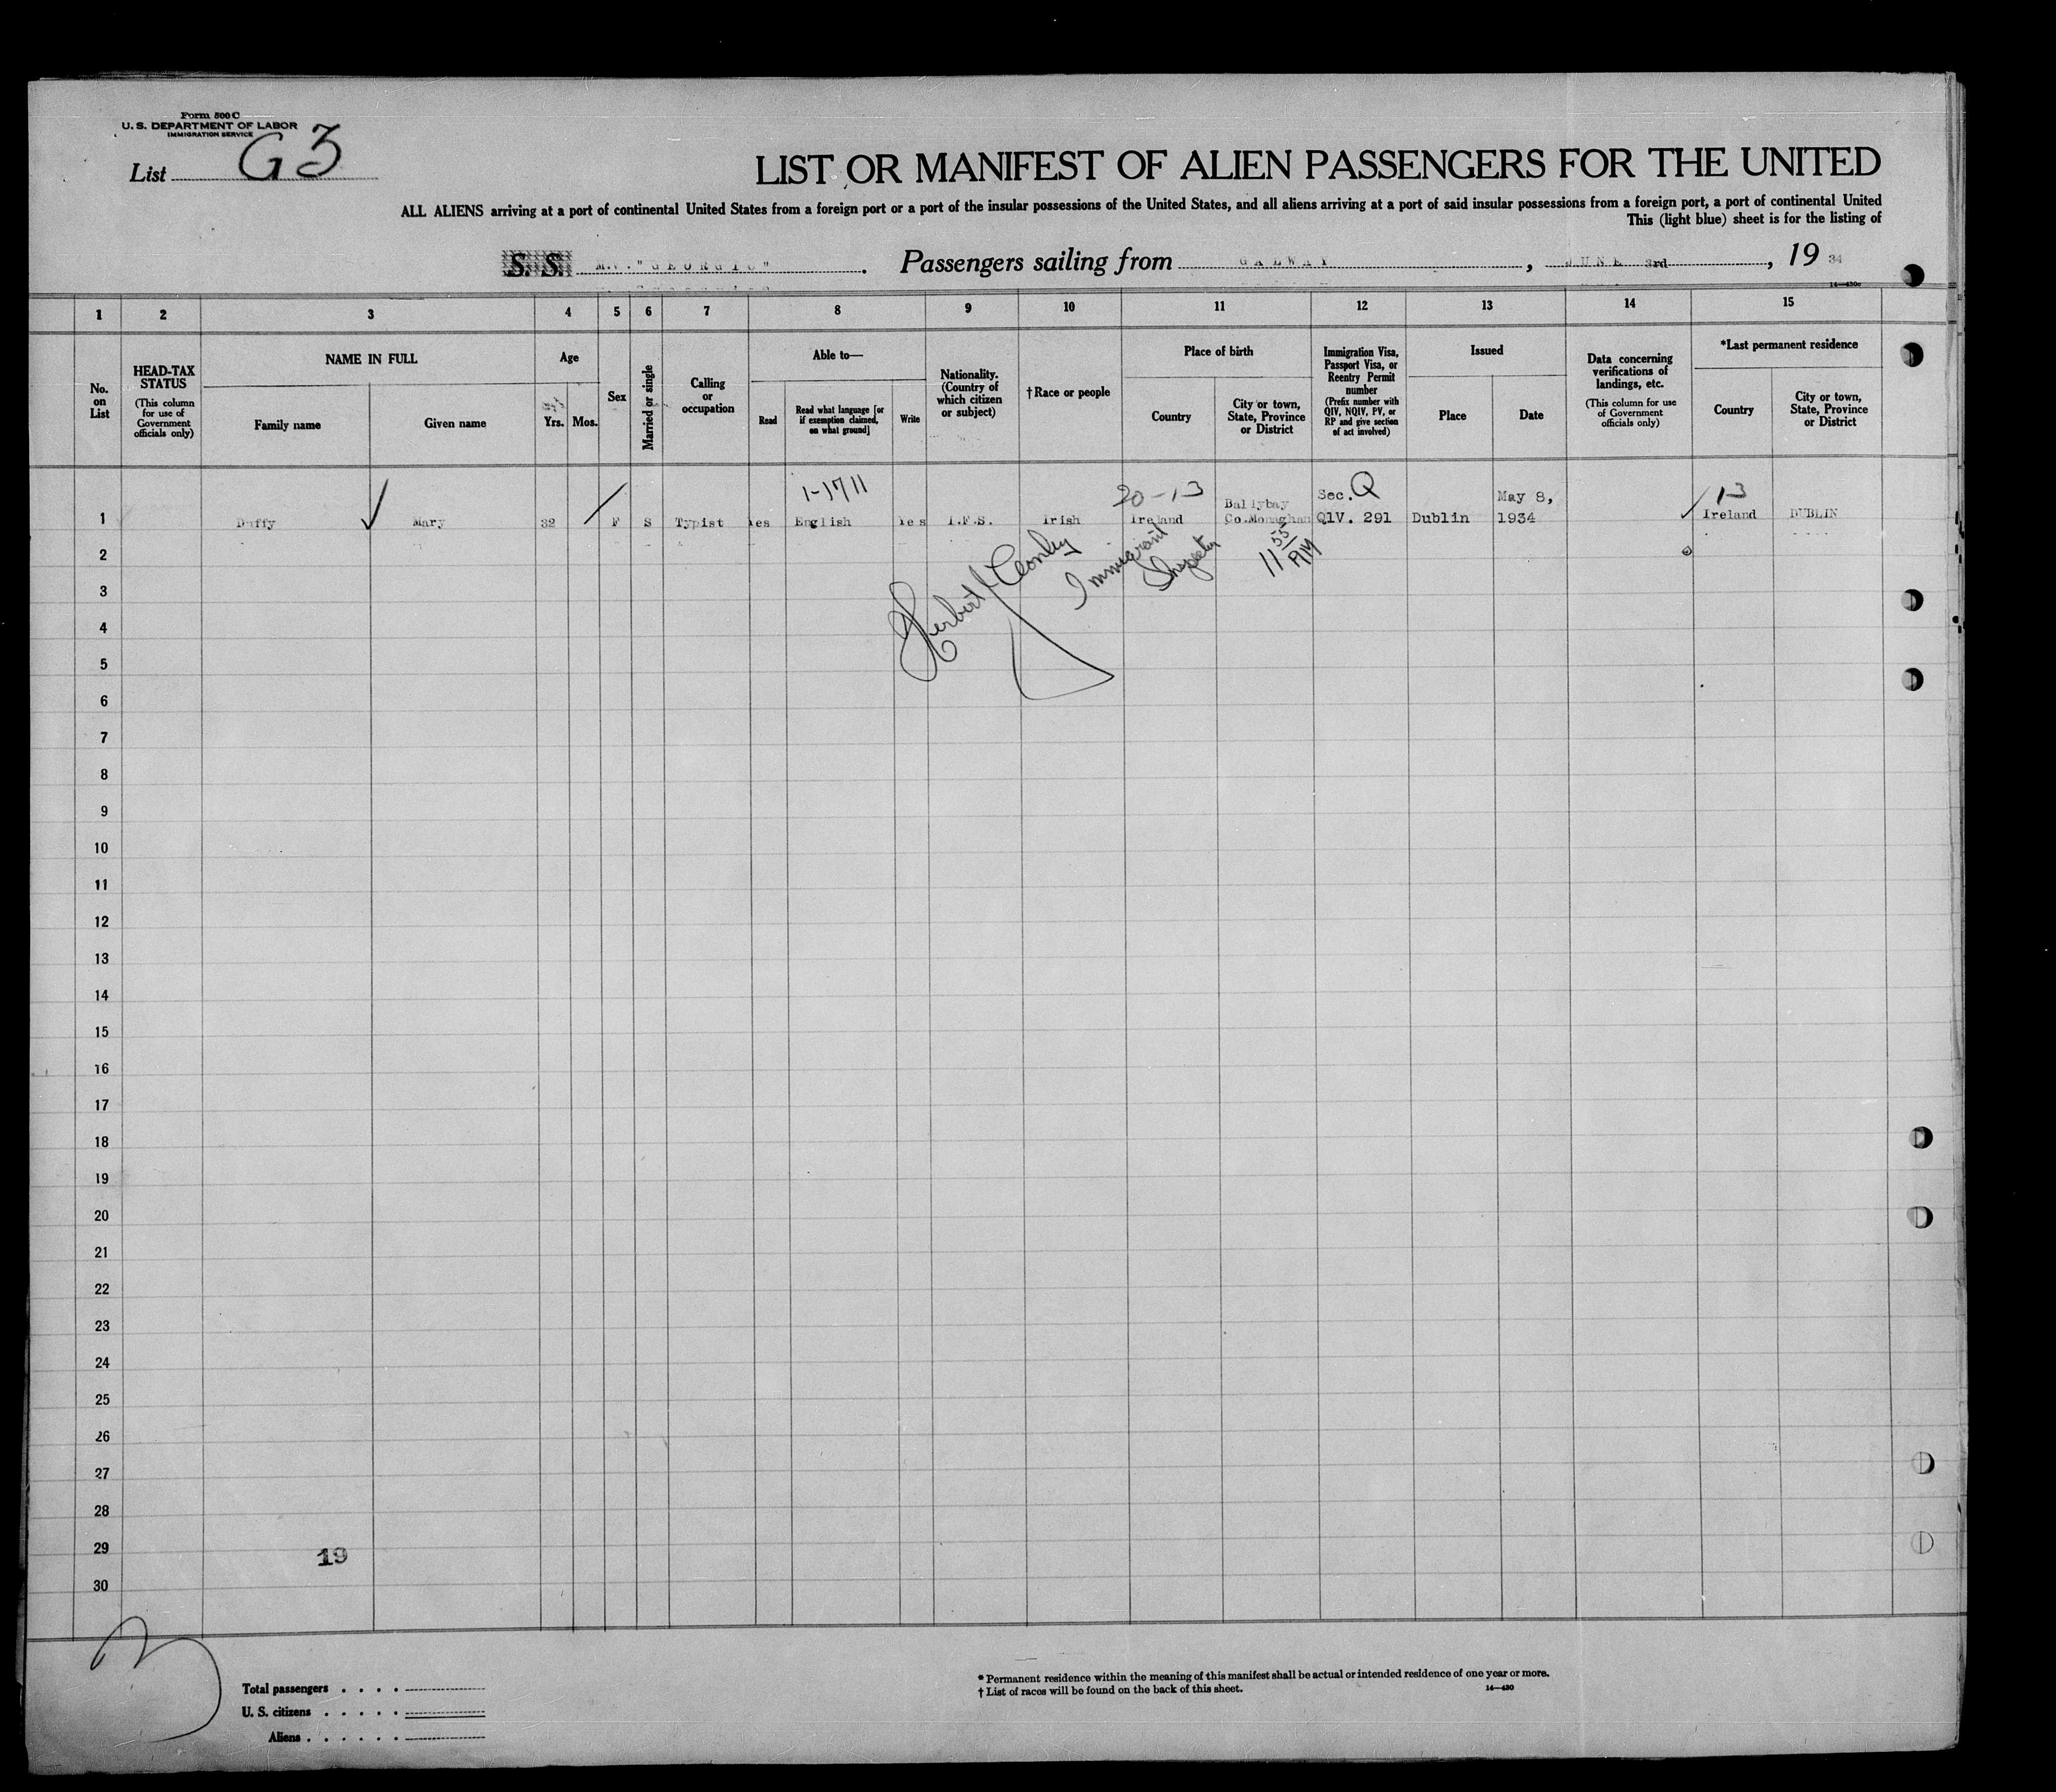 Form 500 C
U. S. DEPARTMENT OF LABOR
IMMIGRATION SERVICE
List G3
LIST OR MANIFEST OF ALIEN PASSENGERS FOR THE UNITED
ALL ALIENS arriving at a port of continental United States from a foreign port or a port of the insular possessions of the United States, and all aliens arriving at a port of said insular possessions from a foreign port, a port of continental United
This (light blue) sheet is for the listing of
S. S. M.V. "GEORGIC". Passengers sailing from GALWAY, JUNE 3rd, 19 34
14—430c
1 2 3 4 5 6 7 8 9 10 11 12 13 14 15
No. on List
HEAD-TAX STATUS
(This column for use of Government officials only)
NAME IN FULL
Family name
Given name
Age
Yrs.
Mos.
Sex
Married or single
Calling or occupation
Able to—
Read
Read what language [or if exemption claimed, on what ground]
Write
Nationality. (Country of which citizen or subject)
† Race or people
Place of birth
Country
City or town, State, Province or District
Immigration Visa, Passport Visa, or Reentry Permit number
(Prefix number with QIV, NQIV, PV, or RP and give section of act involved)
Issued
Place
Date
Data concerning verifications of landings, etc.
(This column for use of Government officials only)
*Last permanent residence
Country
City or town, State, Province or District
1-1711
20-13
Sec. Q
13
Ballybay
May 8,
1 Duffy Mary 32 F S Typist Yes English Yes I.F.S. Irish Ireland Co.Monaghan QIV. 291 Dublin 1934 Ireland DUBLIN
Herbert Conley
Immigrant
Inspector
11 55 AM
2
3
4
5
6
7
8
9
10
11
12
13
14
15
16
17
18
19
20
21
22
23
24
25
26
27
28
29
19
30
Total passengers
U. S. citizens
Aliens
* Permanent residence within the meaning of this manifest shall be actual or intended residence of one year or more.
† List of races will be found on the back of this sheet.
14—430